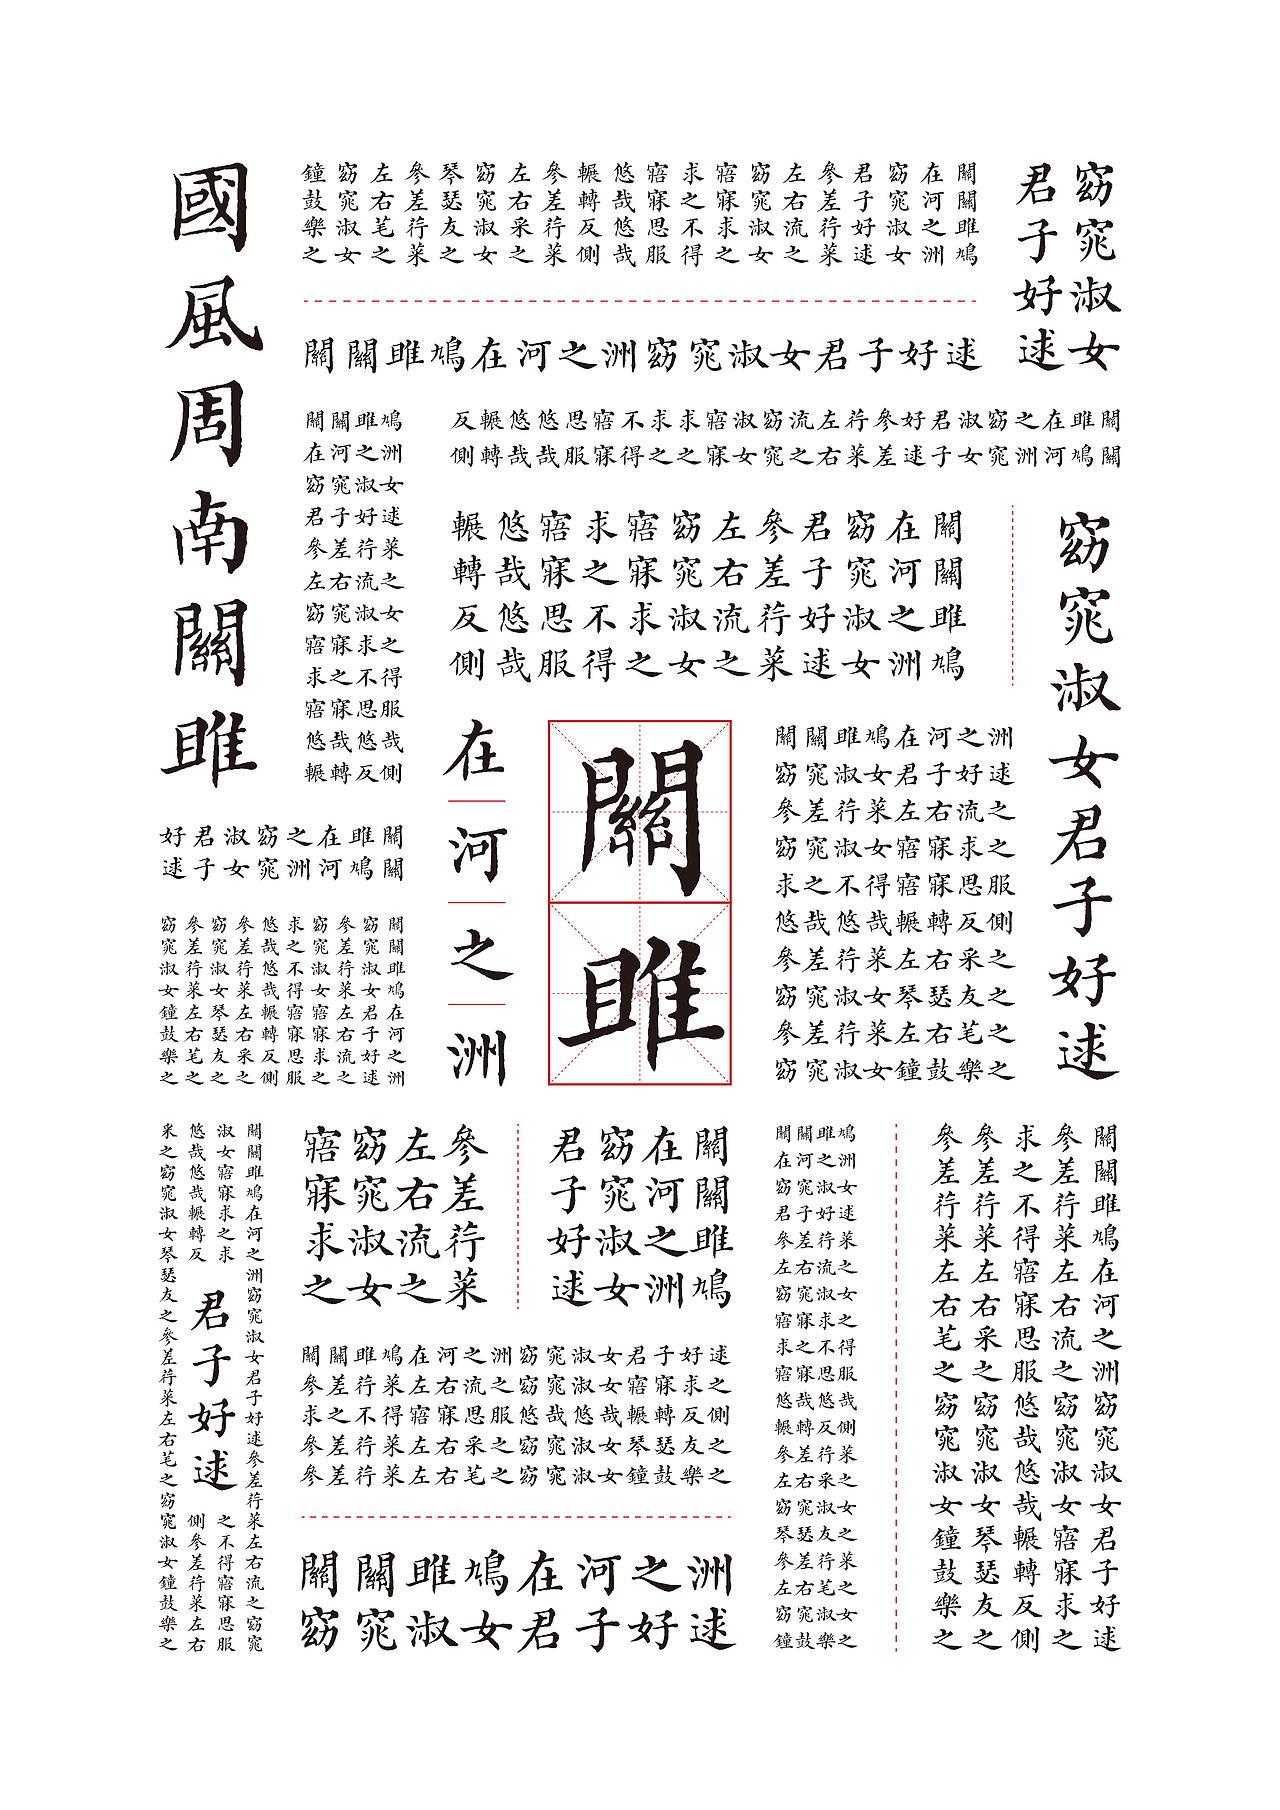 國風周南關雎
窈窕淑女
君子好逑
關關雎鳩
在河之洲
窈窕淑女
君子好逑
參差荇菜
左右流之
窈窕淑女
寤寐求之
求之不得
寤寐思服
悠哉悠哉
輾轉反側
參差荇菜
左右采之
窈窕淑女
琴瑟友之
參差荇菜
左右芼之
窈窕淑女
鐘鼓樂之
關關雎鳩在河之洲窈窕淑女君子好逑
關關
雎鳩
在河
之洲
窈窕
淑女
君子
好逑
參差
荇菜
左右
流之
窈窕
淑女
寤寐
求之
求之
不得
寤寐
思服
悠哉
悠哉
輾轉
反側
關關雎鳩
在河之洲
窈窕淑女
君子好逑
參差荇菜
左右流之
窈窕淑女
寤寐求之
求之不得
寤寐思服
悠哉悠哉
輾轉反側
關關雎鳩
在河之洲
窈窕淑女
君子好逑
參差荇菜
左右流之
窈窕淑女
寤寐求之
求之不得
寤寐思服
悠哉悠哉
輾轉反側
窈窕淑女君子好逑
關雎
在河之洲
關關雎鳩在河之洲
窈窕淑女君子好逑
參差荇菜左右流之
窈窕淑女寤寐求之
求之不得寤寐思服
悠哉悠哉輾轉反側
參差荇菜左右采之
窈窕淑女琴瑟友之
參差荇菜左右芼之
窈窕淑女鐘鼓樂之
關關
雎鳩
在河
之洲
窈窕
淑女
君子
好逑
關關雎鳩在河之洲
窈窕淑女君子好逑
參差荇菜左右流之
窈窕淑女寤寐求之
求之不得寤寐思服
悠哉悠哉輾轉反側
參差荇菜左右采之
窈窕淑女琴瑟友之
參差荇菜左右芼之
窈窕淑女鐘鼓樂之
關關雎鳩在河之洲窈窕淑女君子好逑參差荇菜左右流之窈窕
淑女寤寐求之求
之不得寤寐思服
悠哉悠哉輾轉反
側參差荇菜左右
采之窈窕淑女琴瑟友之參差荇菜左右芼之窈窕淑女鐘鼓樂之
君子好逑
關關雎鳩
在河之洲
窈窕淑女
君子好逑
參差荇菜
左右流之
窈窕淑女
寤寐求之
關關雎鳩在河之洲窈窕淑女君子好逑
參差荇菜左右流之窈窕淑女寤寐求之
求之不得寤寐思服悠哉悠哉輾轉反側
參差荇菜左右采之窈窕淑女琴瑟友之
參差荇菜左右芼之窈窕淑女鐘鼓樂之
關關雎鳩在河之洲
窈窕淑女君子好逑
關關雎鳩
在河之洲
窈窕淑女
君子好逑
參差荇菜
左右流之
窈窕淑女
寤寐求之
求之不得
寤寐思服
悠哉悠哉
輾轉反側
參差荇菜
左右采之
窈窕淑女
琴瑟友之
參差荇菜
左右芼之
窈窕淑女
鐘鼓樂之
關關雎鳩在河之洲窈窕淑女君子好逑
參差荇菜左右流之窈窕淑女寤寐求之
求之不得寤寐思服悠哉悠哉輾轉反側
參差荇菜左右采之窈窕淑女琴瑟友之
參差荇菜左右芼之窈窕淑女鐘鼓樂之